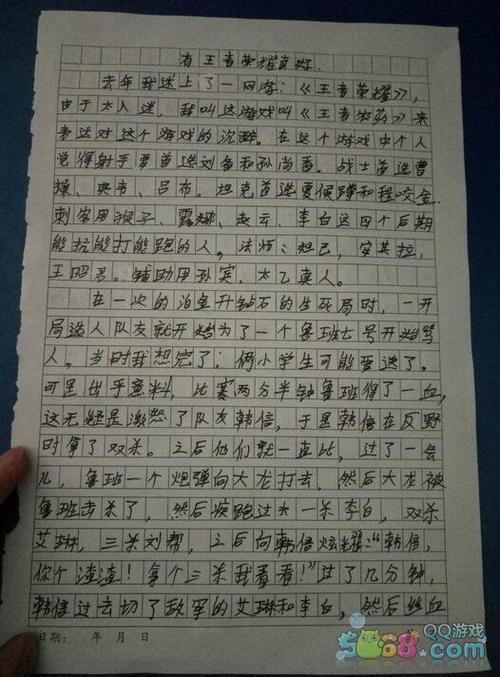 有王者荣耀真好
去年我迷上了一网游：《王者荣耀》，
由于太入迷，我叫这游戏叫《王者农药》来
表达对这个游戏的沉醉。在这个游戏中个人
觉得射手要首选刘备和孙尚香。战士首选曹
操、典韦、吕布。坦克首选夏侯蹲和程咬金
刺客用猴子、露娜、赵云、李白这四个后期
能抗能打能跑的人，法师：妲己，安其拉，
王昭君。辅助用孙宾，太乙真人。
在一次的泊金升钻石的生死局时，一开
局选人队友就开始为了一个鲁班七号开始骂
人。当时我想完了；俩小学生可能要送了。
可是出乎意料，比赛两分半钟鲁班得了一血，
这无疑是激怒了队友韩信，于是韩信在反野
时拿了双杀。之后他们就一直比，过了一会
儿，鲁班一个炮弹向大龙打去，然后大龙被
鲁班击杀了，然后疾跑过去一杀李白，双杀
艾琳，三杀刘帮，之后向韩信炫耀："韩信，
你个渣渣！拿个三杀我看看！"过了几分钟，
韩信过去切了敌军的艾琳和李白，然后丝血
日期： 年 月 日
QQ游戏
5068.com